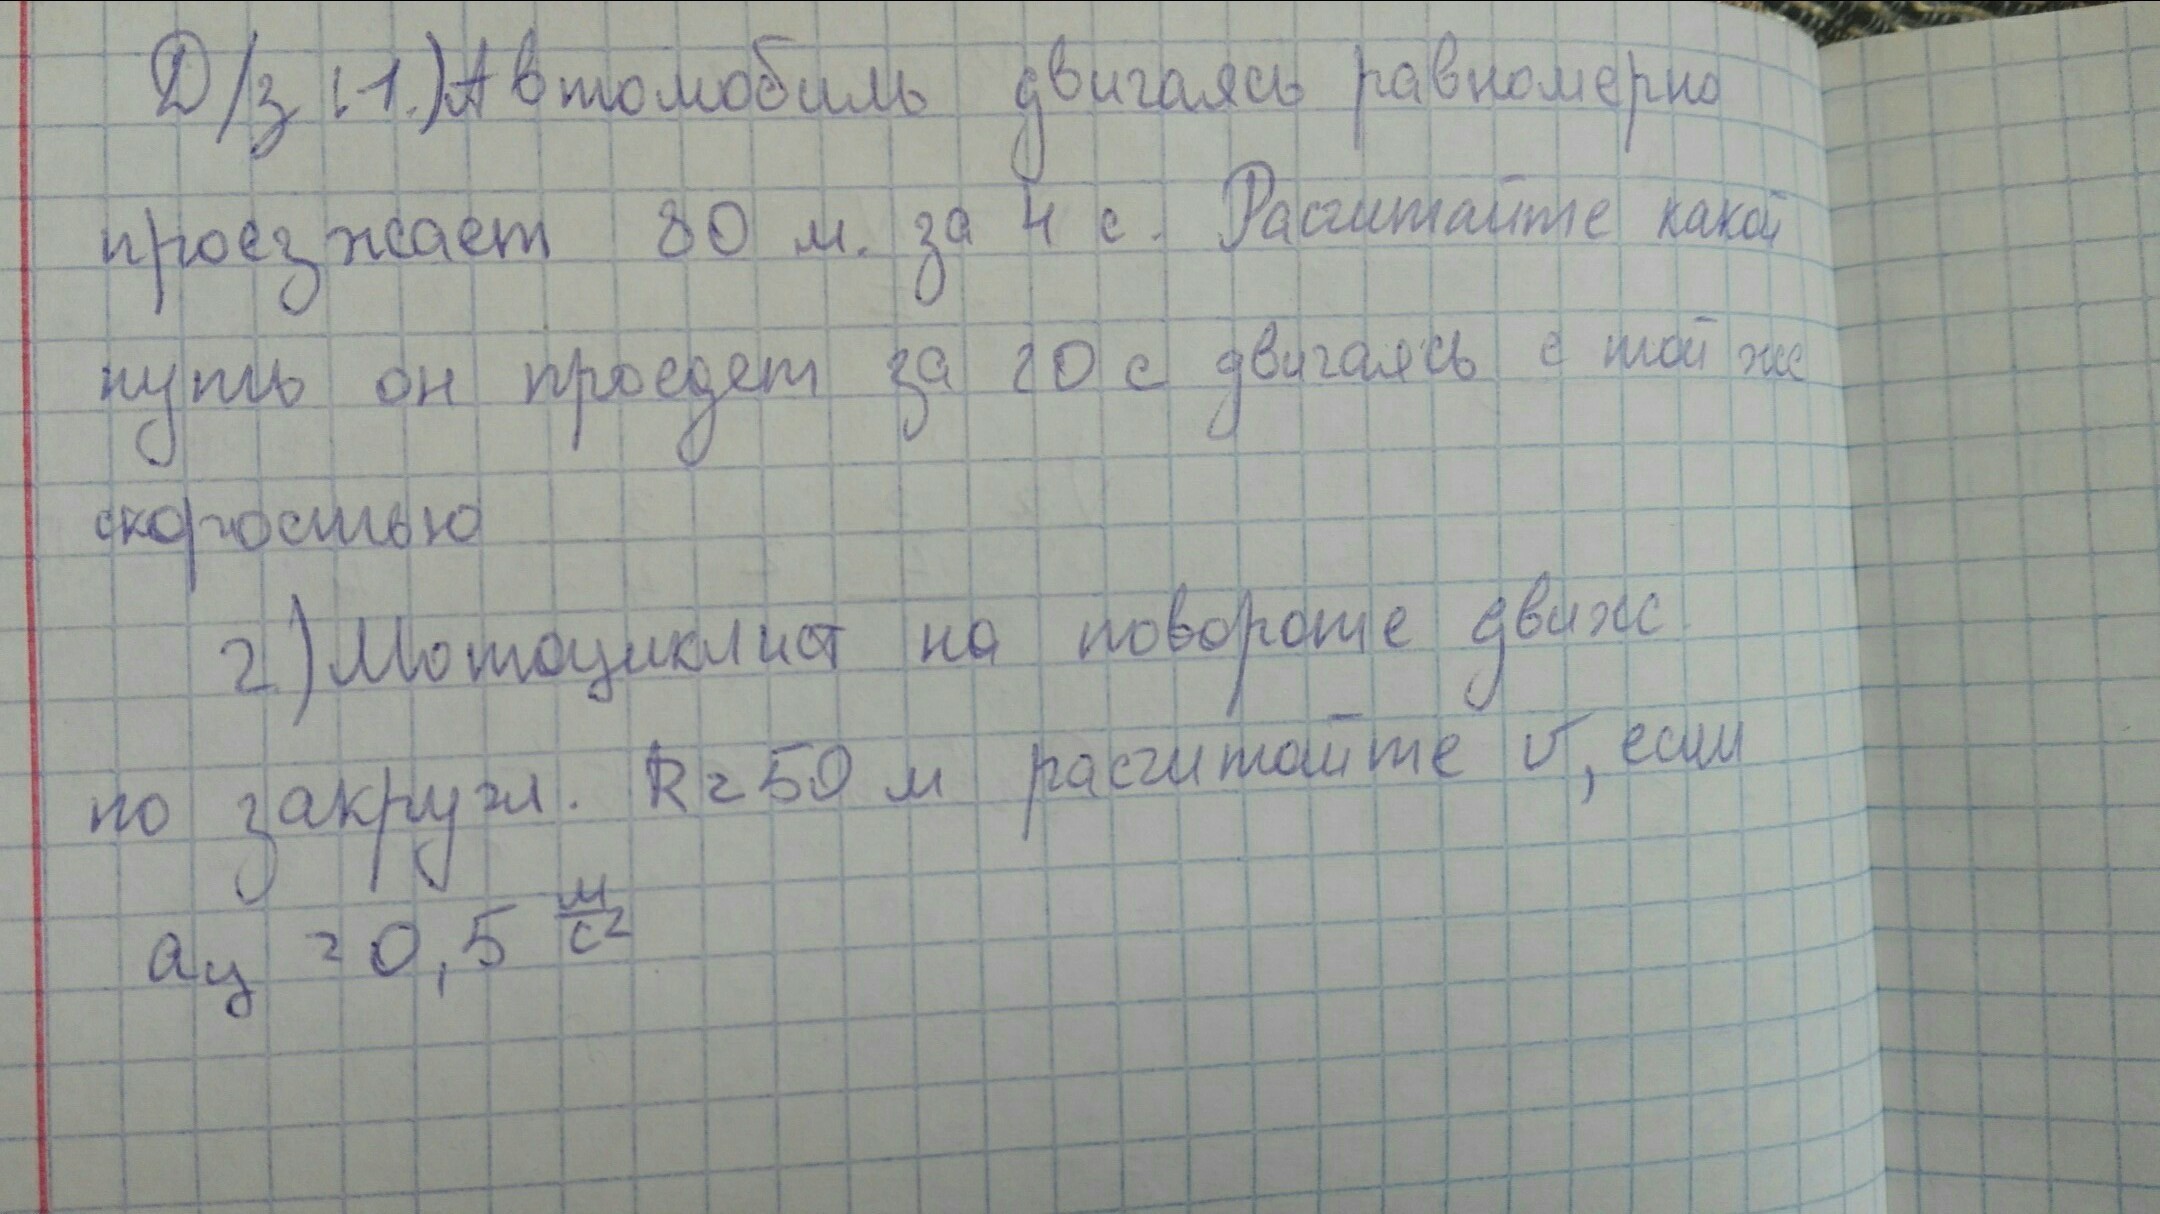 Д/з :1.) Автомобиль двигаясь равномерно
проезжает 80 м. за 4 с. Расчитайте какой
путь он проедет за 20 с двигаясь с той же
скоростью
2) Мотоциклист на повороте движ
по закругл. R=50 м расчитайте v, если
aц =0,5 м/с²